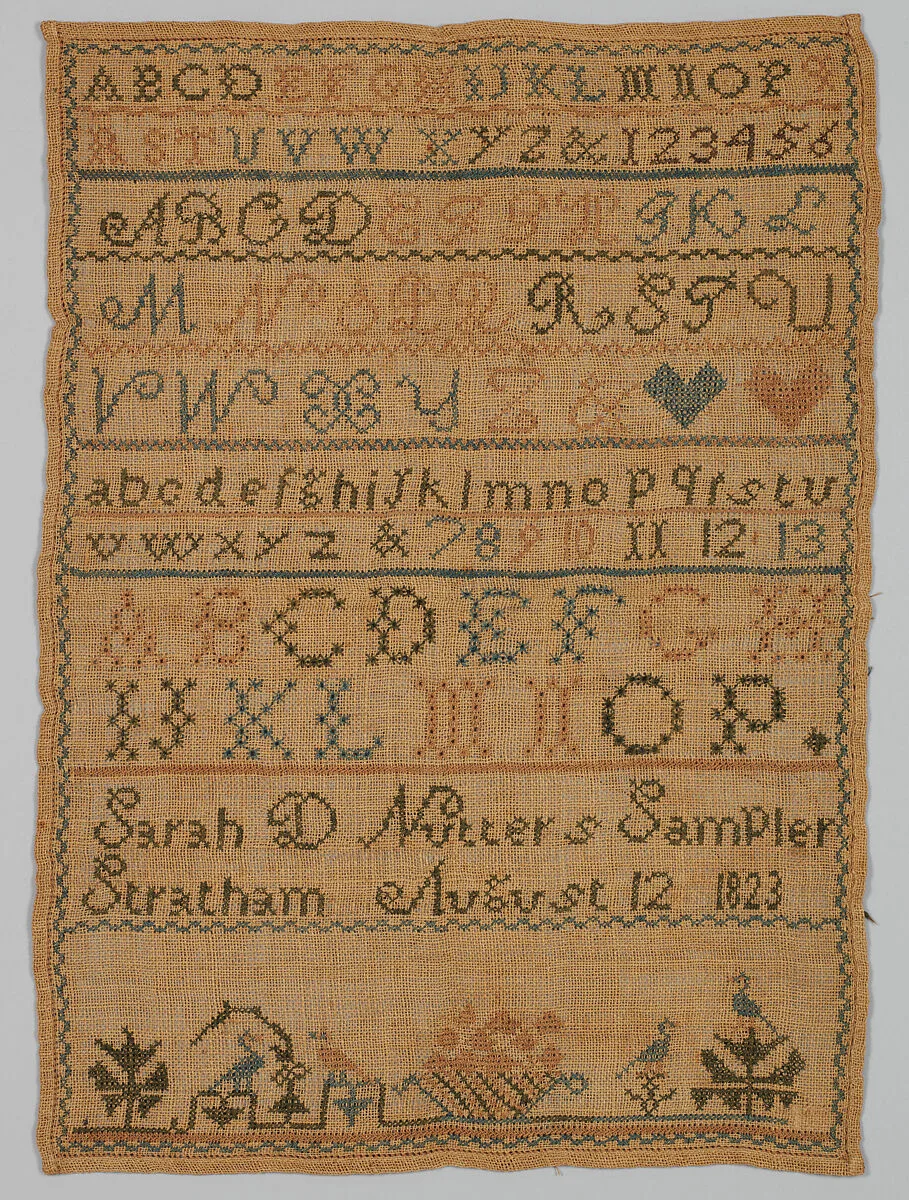 A B C D E F G H I J K L M N O P Q
R S T U V W X Y Z & 1 2 3 4 5 6
A B C D E F G H I K L
M N O P Q R S T U
V W X Y Z &
a b c d e f g h i j k l m n o p q r s t u
v w x y z & 7 8 9 10 11 12 13
A B C D E F G H
I J K L M N O P .
Sarah D Nutters Sampler
Stratham August 12 1823